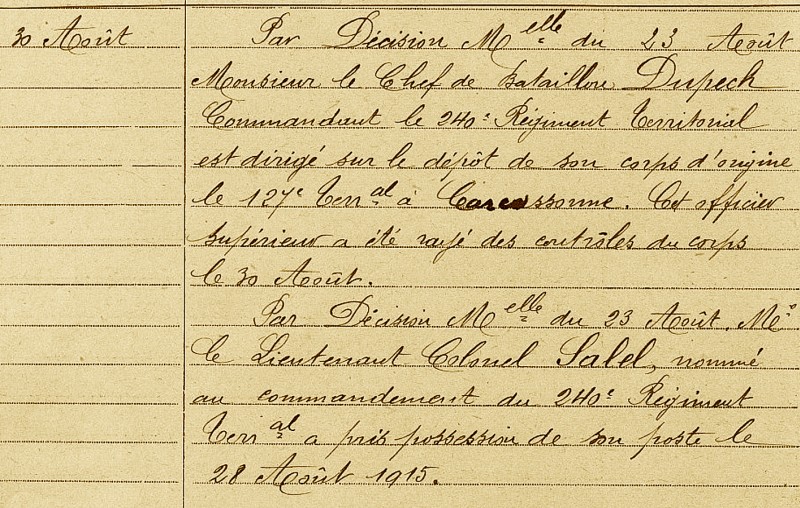 30 Août
Par Décision Melle du 23 Août
Monsieur le Chef de bataillon Dupech
Commandant le 240e Régiment Territorial
est dirigé sur le dépôt de son corps d'origine
le 127e Terral à Carcassonne. Cet officier
supérieur a été rayé des contrôles du corps
le 30 Août.
Par Décision Melle du 23 Août, Mr
le Lieutenant Colonel Salel, nommé
au commandement du 240e Régiment
Terral a pris possession de son poste le
28 Août 1915.